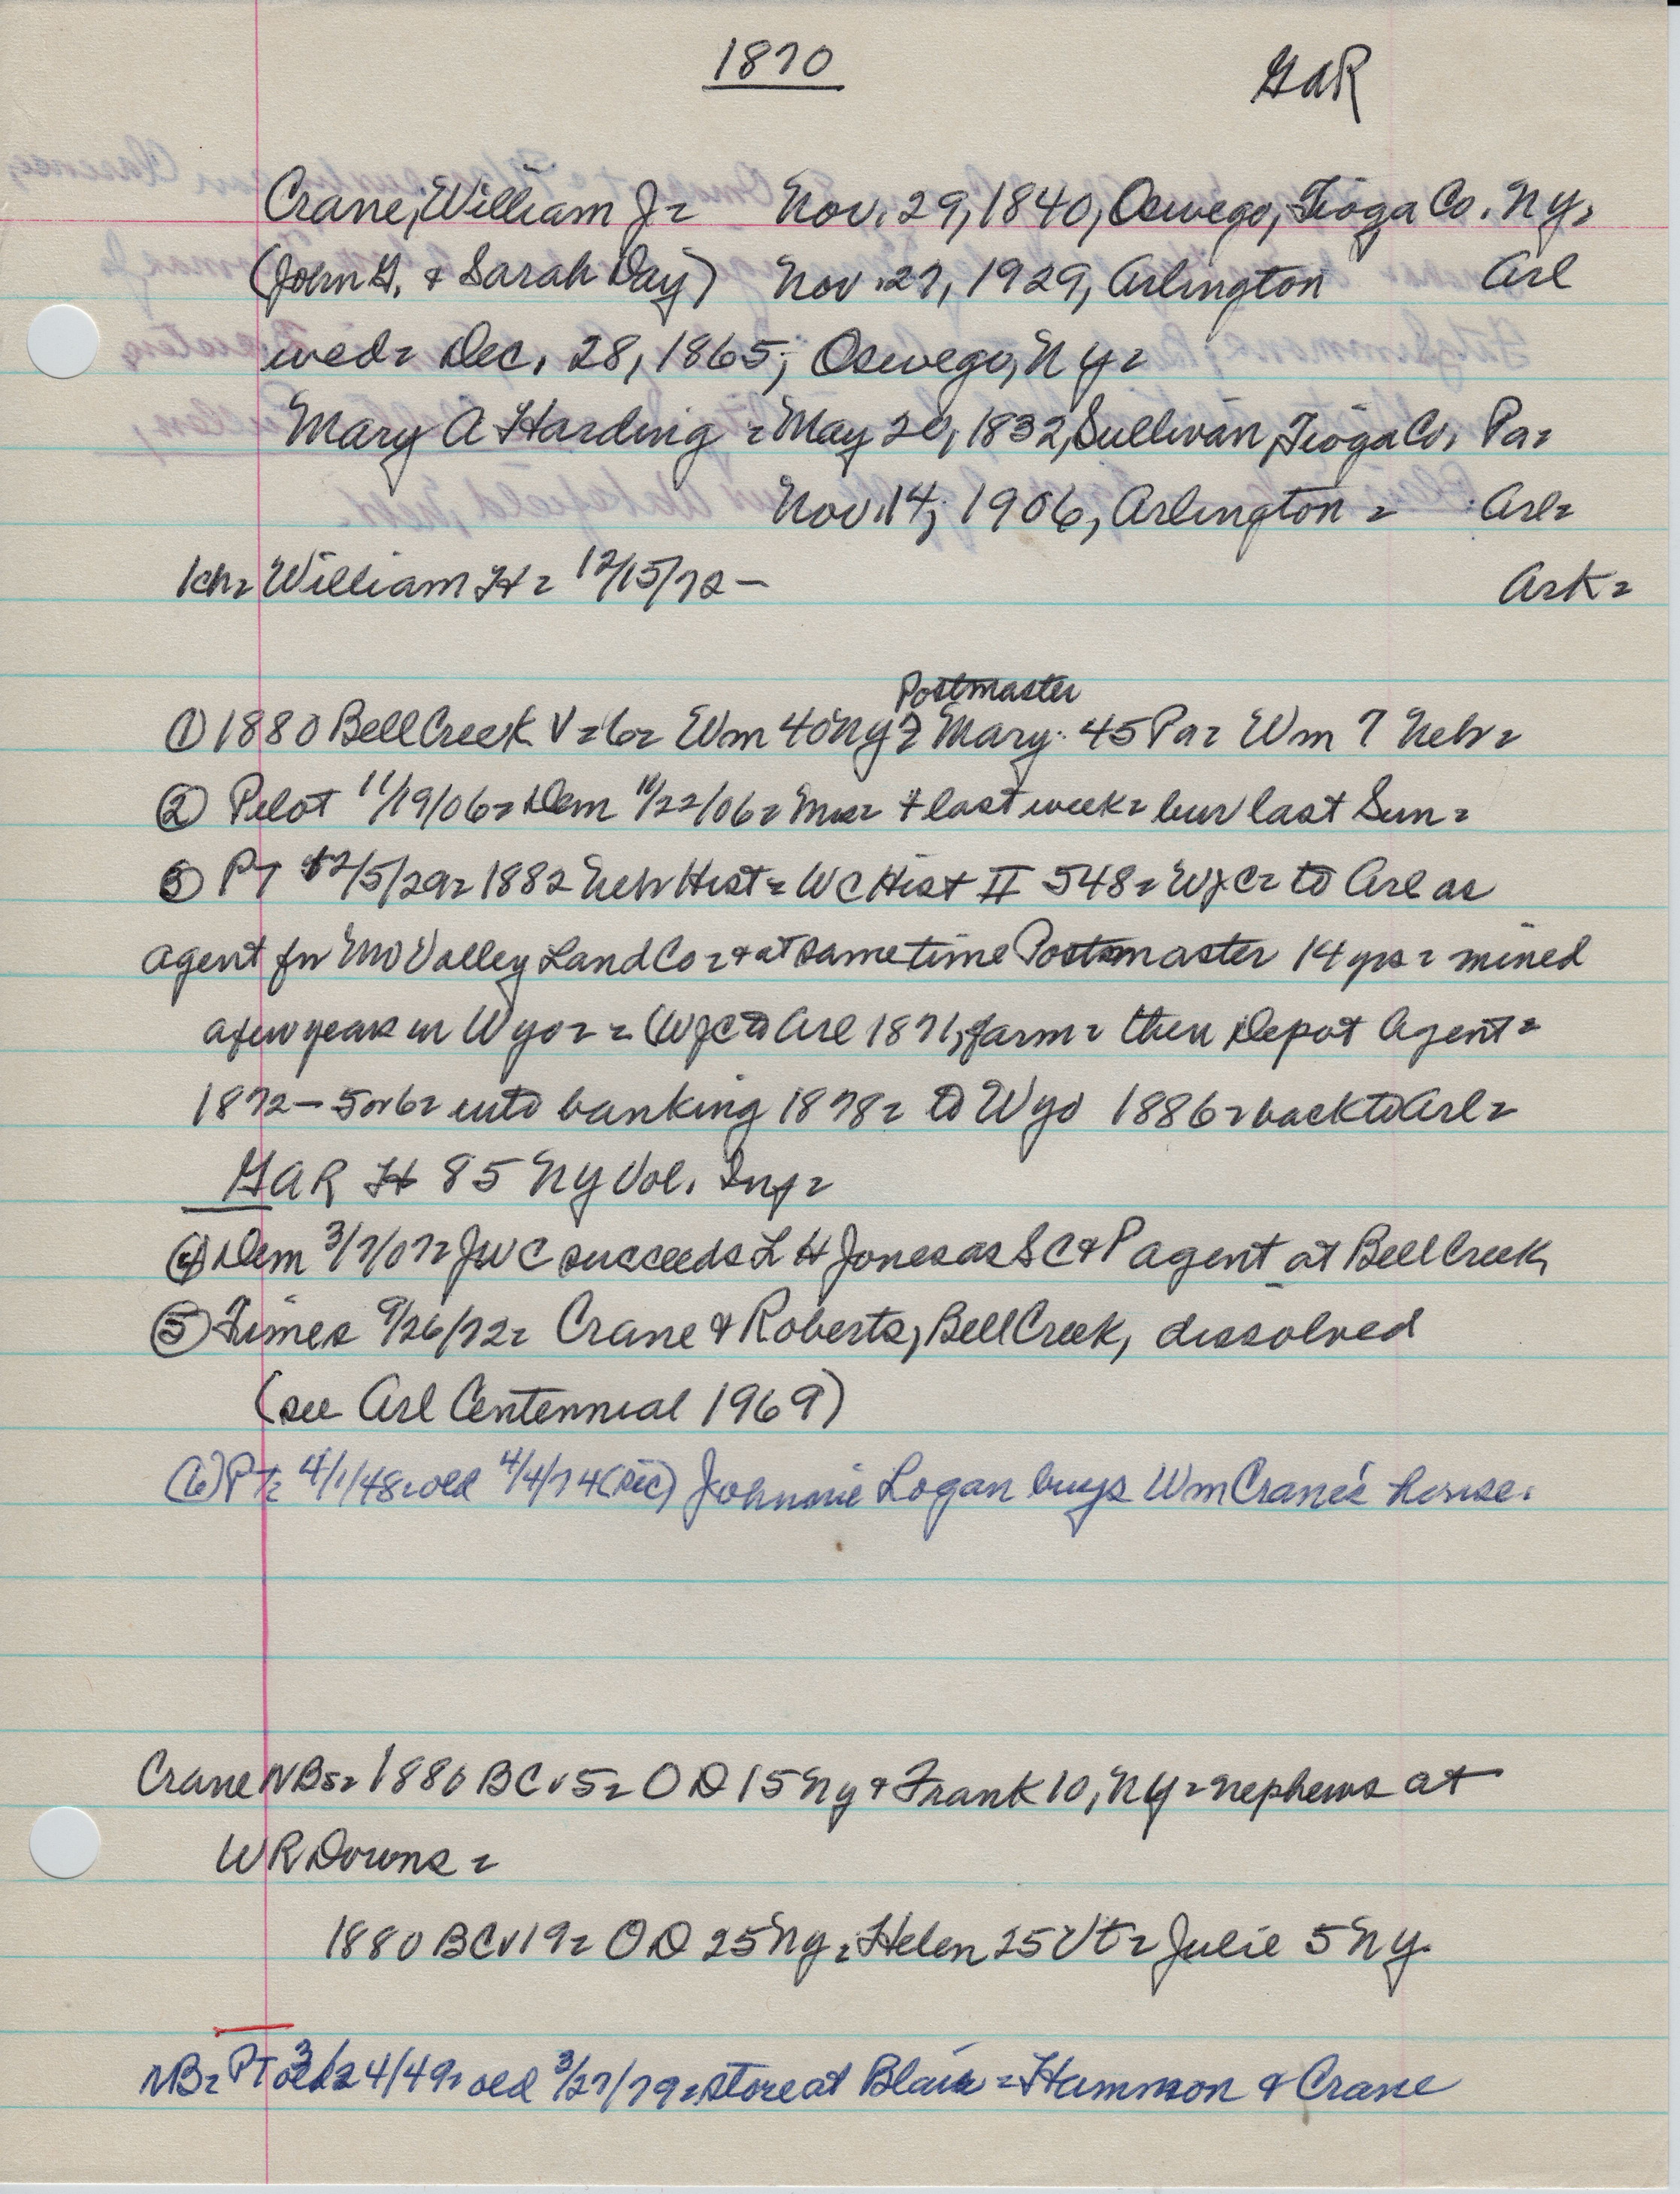 1870 GAR
Crane, William J= Nov. 29, 1840, Oswego, Tioga Co. NY=
(John G. & Sarah Day) Nov. 27, 1929, Arlington Arl
wed= Dec. 28, 1865; Oswego, NY=
Mary A Harding = May 20, 1832, Sullivan, Tioga Co, Pa=
Nov. 14, 1906, Arlington = Arl=
1ch= William H= 12/15/72 — Ark=
Postmaster
① 1880 Bell Creek V=6= Wm 40 NY= Mary 45 Pa= Wm 7 Nebr=
② Pilot 11/19/06= Dem 11/22/06= Mrs= + last week= bur last Sun=
③ PT 12/5/29= 1882 Nebr Hist= WC Hist II 548= WJC= to Arl as
agent for Mo Valley Land Co= & at same time Postmaster 14 yrs= mined
a few years in Wyo= = (WJC to Arl 1871, farm= then Depot Agent=
1872 — 5 or 6= into banking 1878= to Wyo 1886= back to Arl=
GAR H 85 NY Vol. Inf=
④ Dem 3/7/07= JWC succeeds L H Jones as SC & P agent at Bell Creek,
⑤ Times 9/26/72= Crane & Roberts, Bell Creek, dissolved
(see Arl Centennial 1969)
(6) PT= 4/1/48= old 4/4/74 (sic) Johnnie Logan buys Wm Crane's house.
Crane NBs= 1880 BC v5= OD 15 NY & Frank 10, NY= nephews at
WR Downs =
1880 BC v19= OD 25 NY= Helen 25 Vt= Julie 5 NY.
NB= PT 3/24/49= old 3/27/79= store at Blair = Hammon & Crane